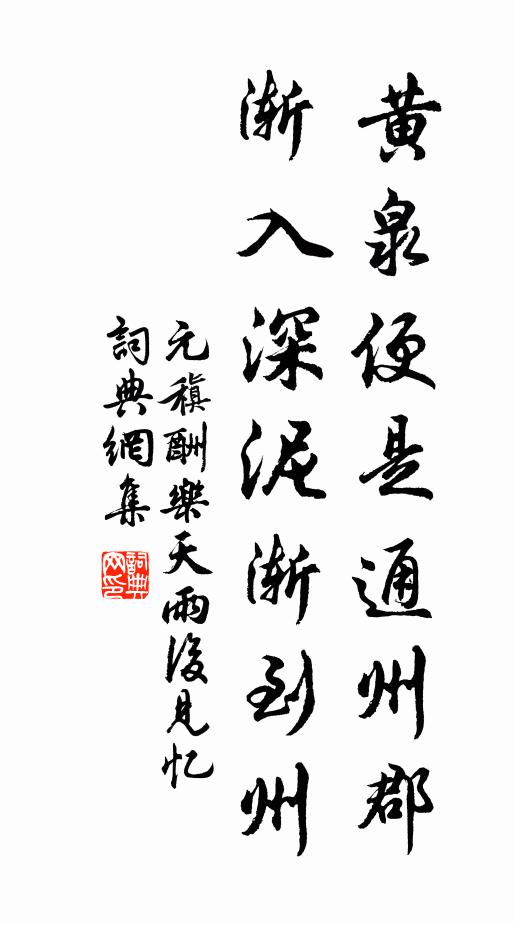 黃泉便是通州郡
漸入深泥漸到州
元稹酬樂天雨後見忆
詞典網集
詞典
网印